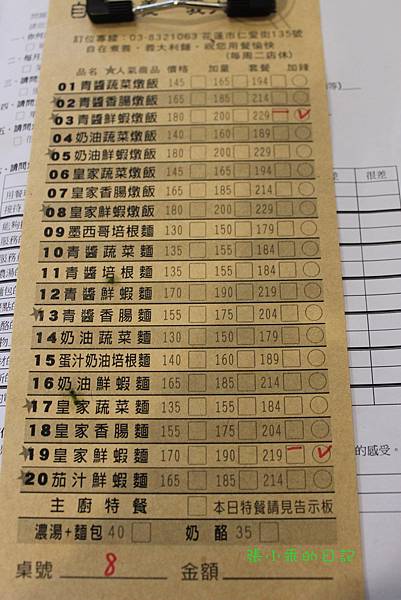 自
訂位專線：03-8321063 花蓮市仁愛街135號
自在煮義、義大利麵，祝您用餐愉快
(每周二店休)
品名 ★人氣商品 價格 加量 套餐 加辣
01青醬蔬菜燉飯 145 165 194
★02青醬香腸燉飯 165 185 214
★03青醬鮮蝦燉飯 180 200 229 一 ✓
04奶油蔬菜燉飯 140 160 189
★05奶油鮮蝦燉飯 180 200 229
06皇家蔬菜燉飯 135 155 184
07皇家香腸燉飯 165 185 214
★08皇家鮮蝦燉飯 180 200 229
09墨西哥培根麵 130 150 179
10青醬蔬菜麵 135 155 184
11青醬培根麵 135 155 184
12青醬鮮蝦麵 170 190 219
★13青醬香腸麵 155 175 204
14奶油蔬菜麵 130 150 179
15蛋汁奶油培根麵 140 160 189
16奶油鮮蝦麵 165 185 214
★17皇家蔬菜麵 135 155 184
18皇家香腸麵 155 175 204
★19皇家鮮蝦麵 170 190 219 一 ✓
★20茄汁鮮蝦麵 165 185 214
主廚特餐 本日特餐請見告示板
濃湯+麵包 40 奶酪 35
桌號 8 金額
張小乖的日記
很差
的感受。